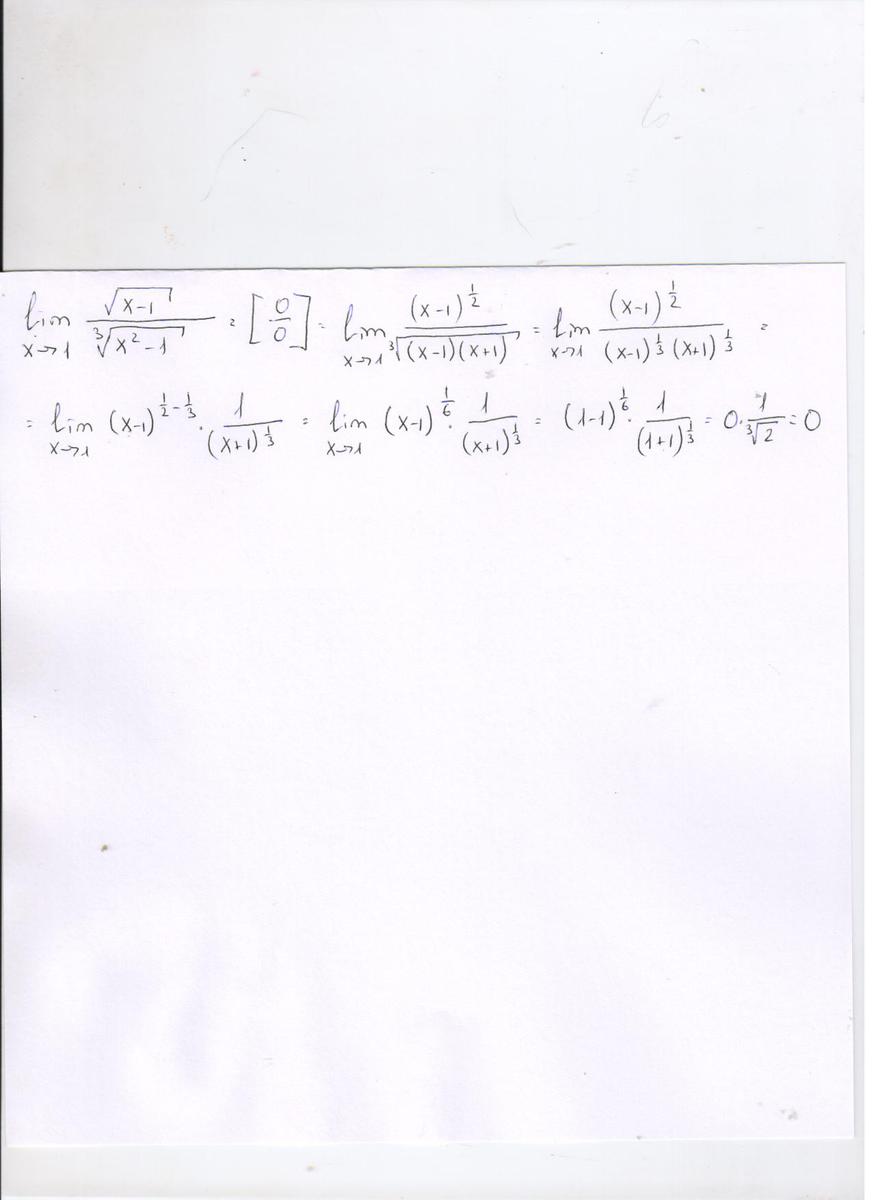 lim x→1 √(x-1) / ∛(x²-1) = [0/0] = lim x→1 (x-1)^(1/2) / ∛((x-1)(x+1)) = lim x→1 (x-1)^(1/2) / ((x-1)^(1/3) (x+1)^(1/3)) =
= lim x→1 (x-1)^(1/2-1/3) · 1/(x+1)^(1/3) = lim x→1 (x-1)^(1/6) · 1/(x+1)^(1/3) = (1-1)^(1/6) · 1/(1+1)^(1/3) = 0 · 1/∛2 = 0